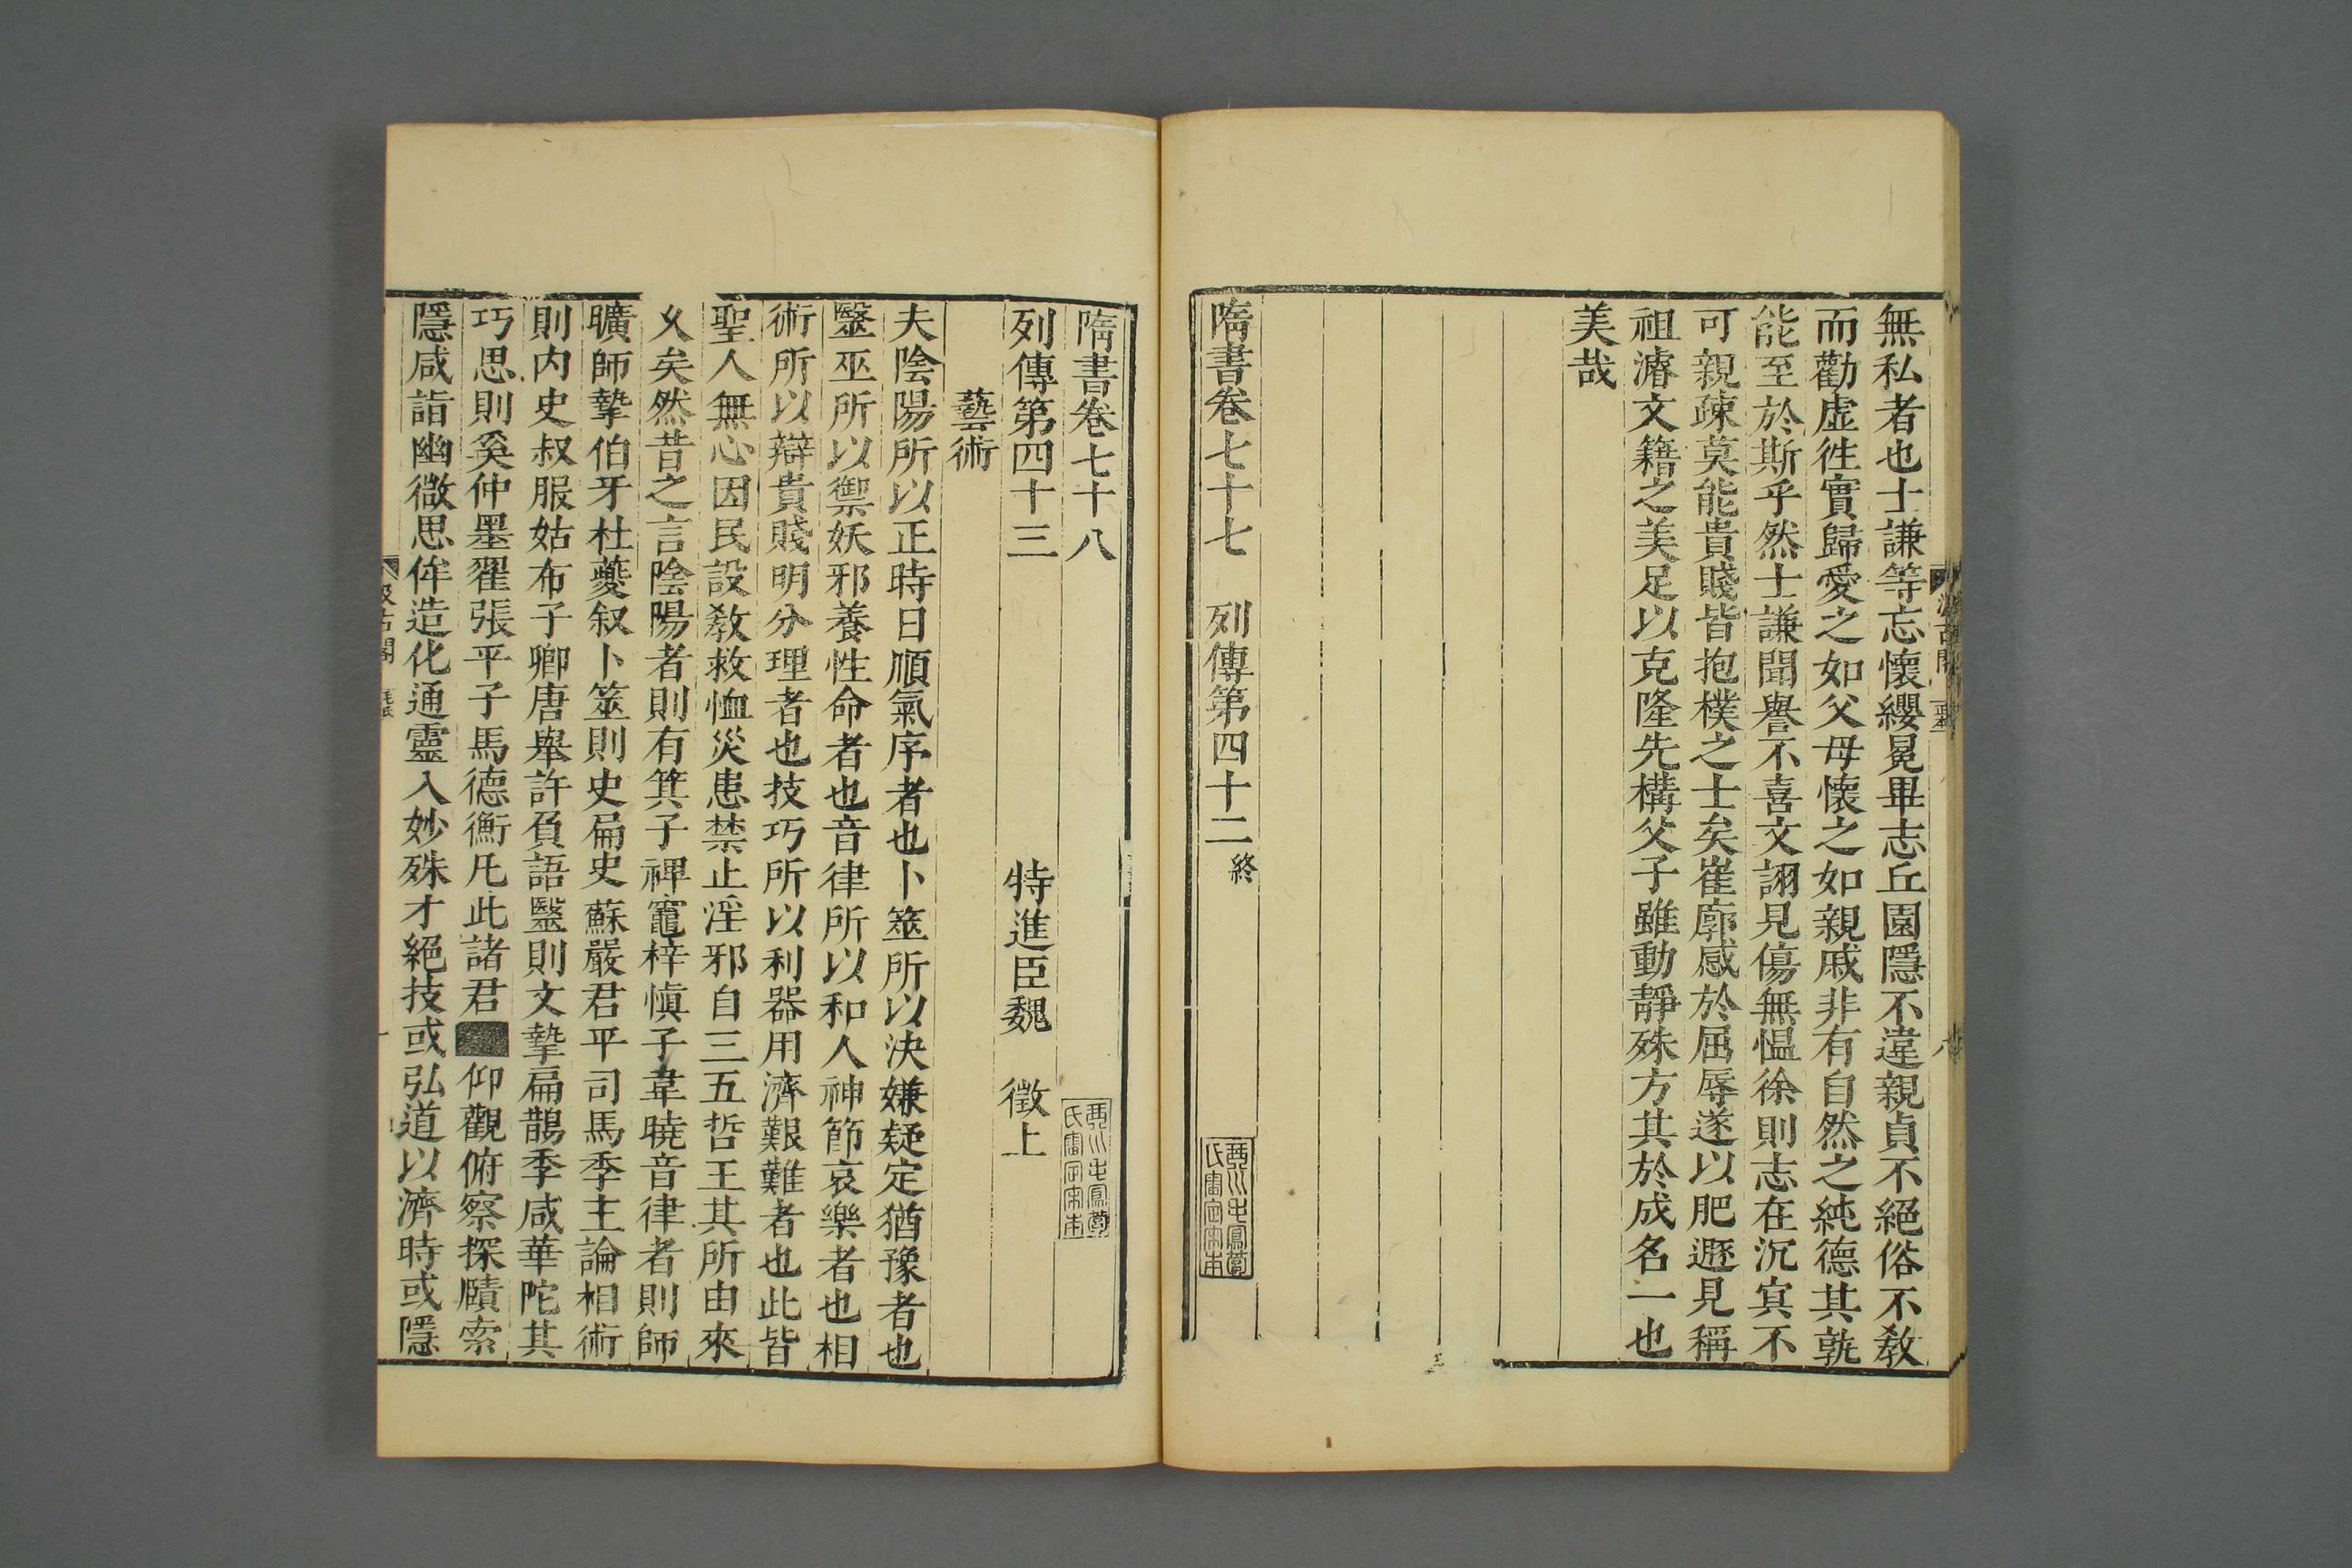 無私者也士謙等忘懷纓冕畢志丘園隱不違親貞不絕俗不敎
而勸虛徃實歸愛之如父母懷之如親戚非有自然之純德其孰
能至於斯乎然士謙聞譽不喜文詡見傷無愠徐則志在沉寘不
可親疎莫能貴賤皆抱樸之士矣崔廓感於屈辱遂以肥遯見稱
祖濬文籍之美足以克隆先構父子雖動靜殊方其於成名一也
美哉
隋書卷七十七　列傳第四十二終
隋書卷七十八
列傳第四十三　特進臣魏　徵上
藝術
夫陰陽所以正時日順氣序者也卜筮所以決嫌疑定猶豫者也
醫巫所以禦妖邪養性命者也音律所以和人神節哀樂者也相
術所以辯貴賤明分理者也技巧所以利器用濟艱難者也此皆
聖人無心因民設敎救恤災患禁止淫邪自三五哲王其所由來
久矣然昔之言陰陽者則有箕子裨竈梓愼子韋曉音律者則師
曠師摯伯牙杜夔叙卜筮則史扁史蘇嚴君平司馬季主論相術
則内史叔服姑布子卿唐舉許負語醫則文摯扁鵲季咸華陀其
巧思則奚仲墨翟張平子馬德衡凡此諸君仰觀俯察探賾索
隱咸詣幽微思侔造化通靈入妙殊才絕技或弘道以濟時或隱